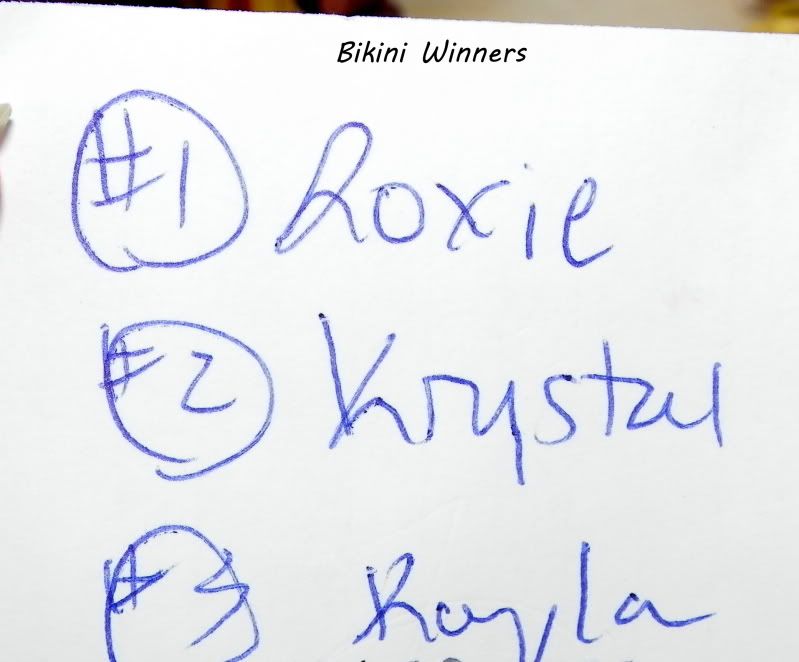 Bikini Winners
#1 Roxie
#2 Krystal
#3 Kayla